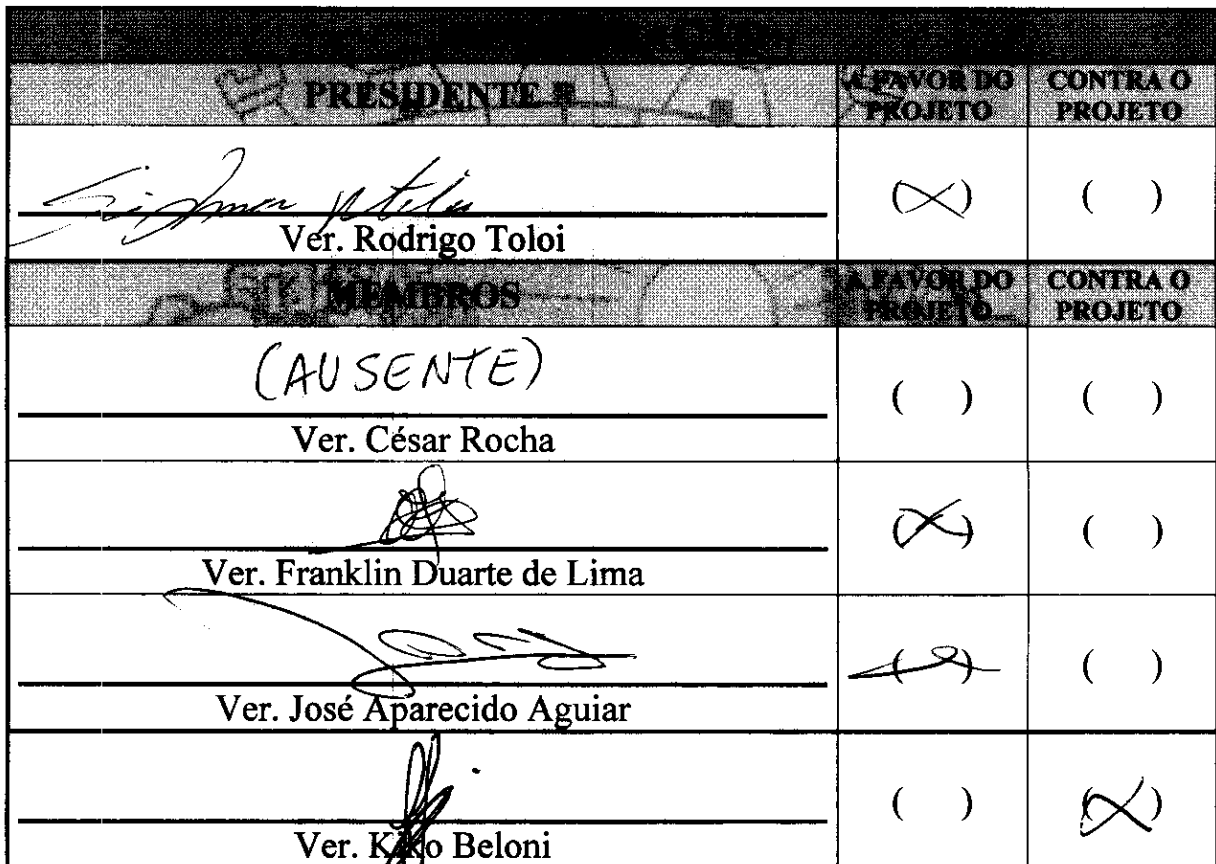 PRESIDENTE
A FAVOR DO PROJETO
CONTRA O PROJETO
( X )
( )
Ver. Rodrigo Toloi
MEMBROS
A FAVOR DO PROJETO
CONTRA O PROJETO
(AUSENTE)
( )
( )
Ver. César Rocha
( X )
( )
Ver. Franklin Duarte de Lima
( )
( )
Ver. José Aparecido Aguiar
( )
( X )
Ver. Kiko Beloni